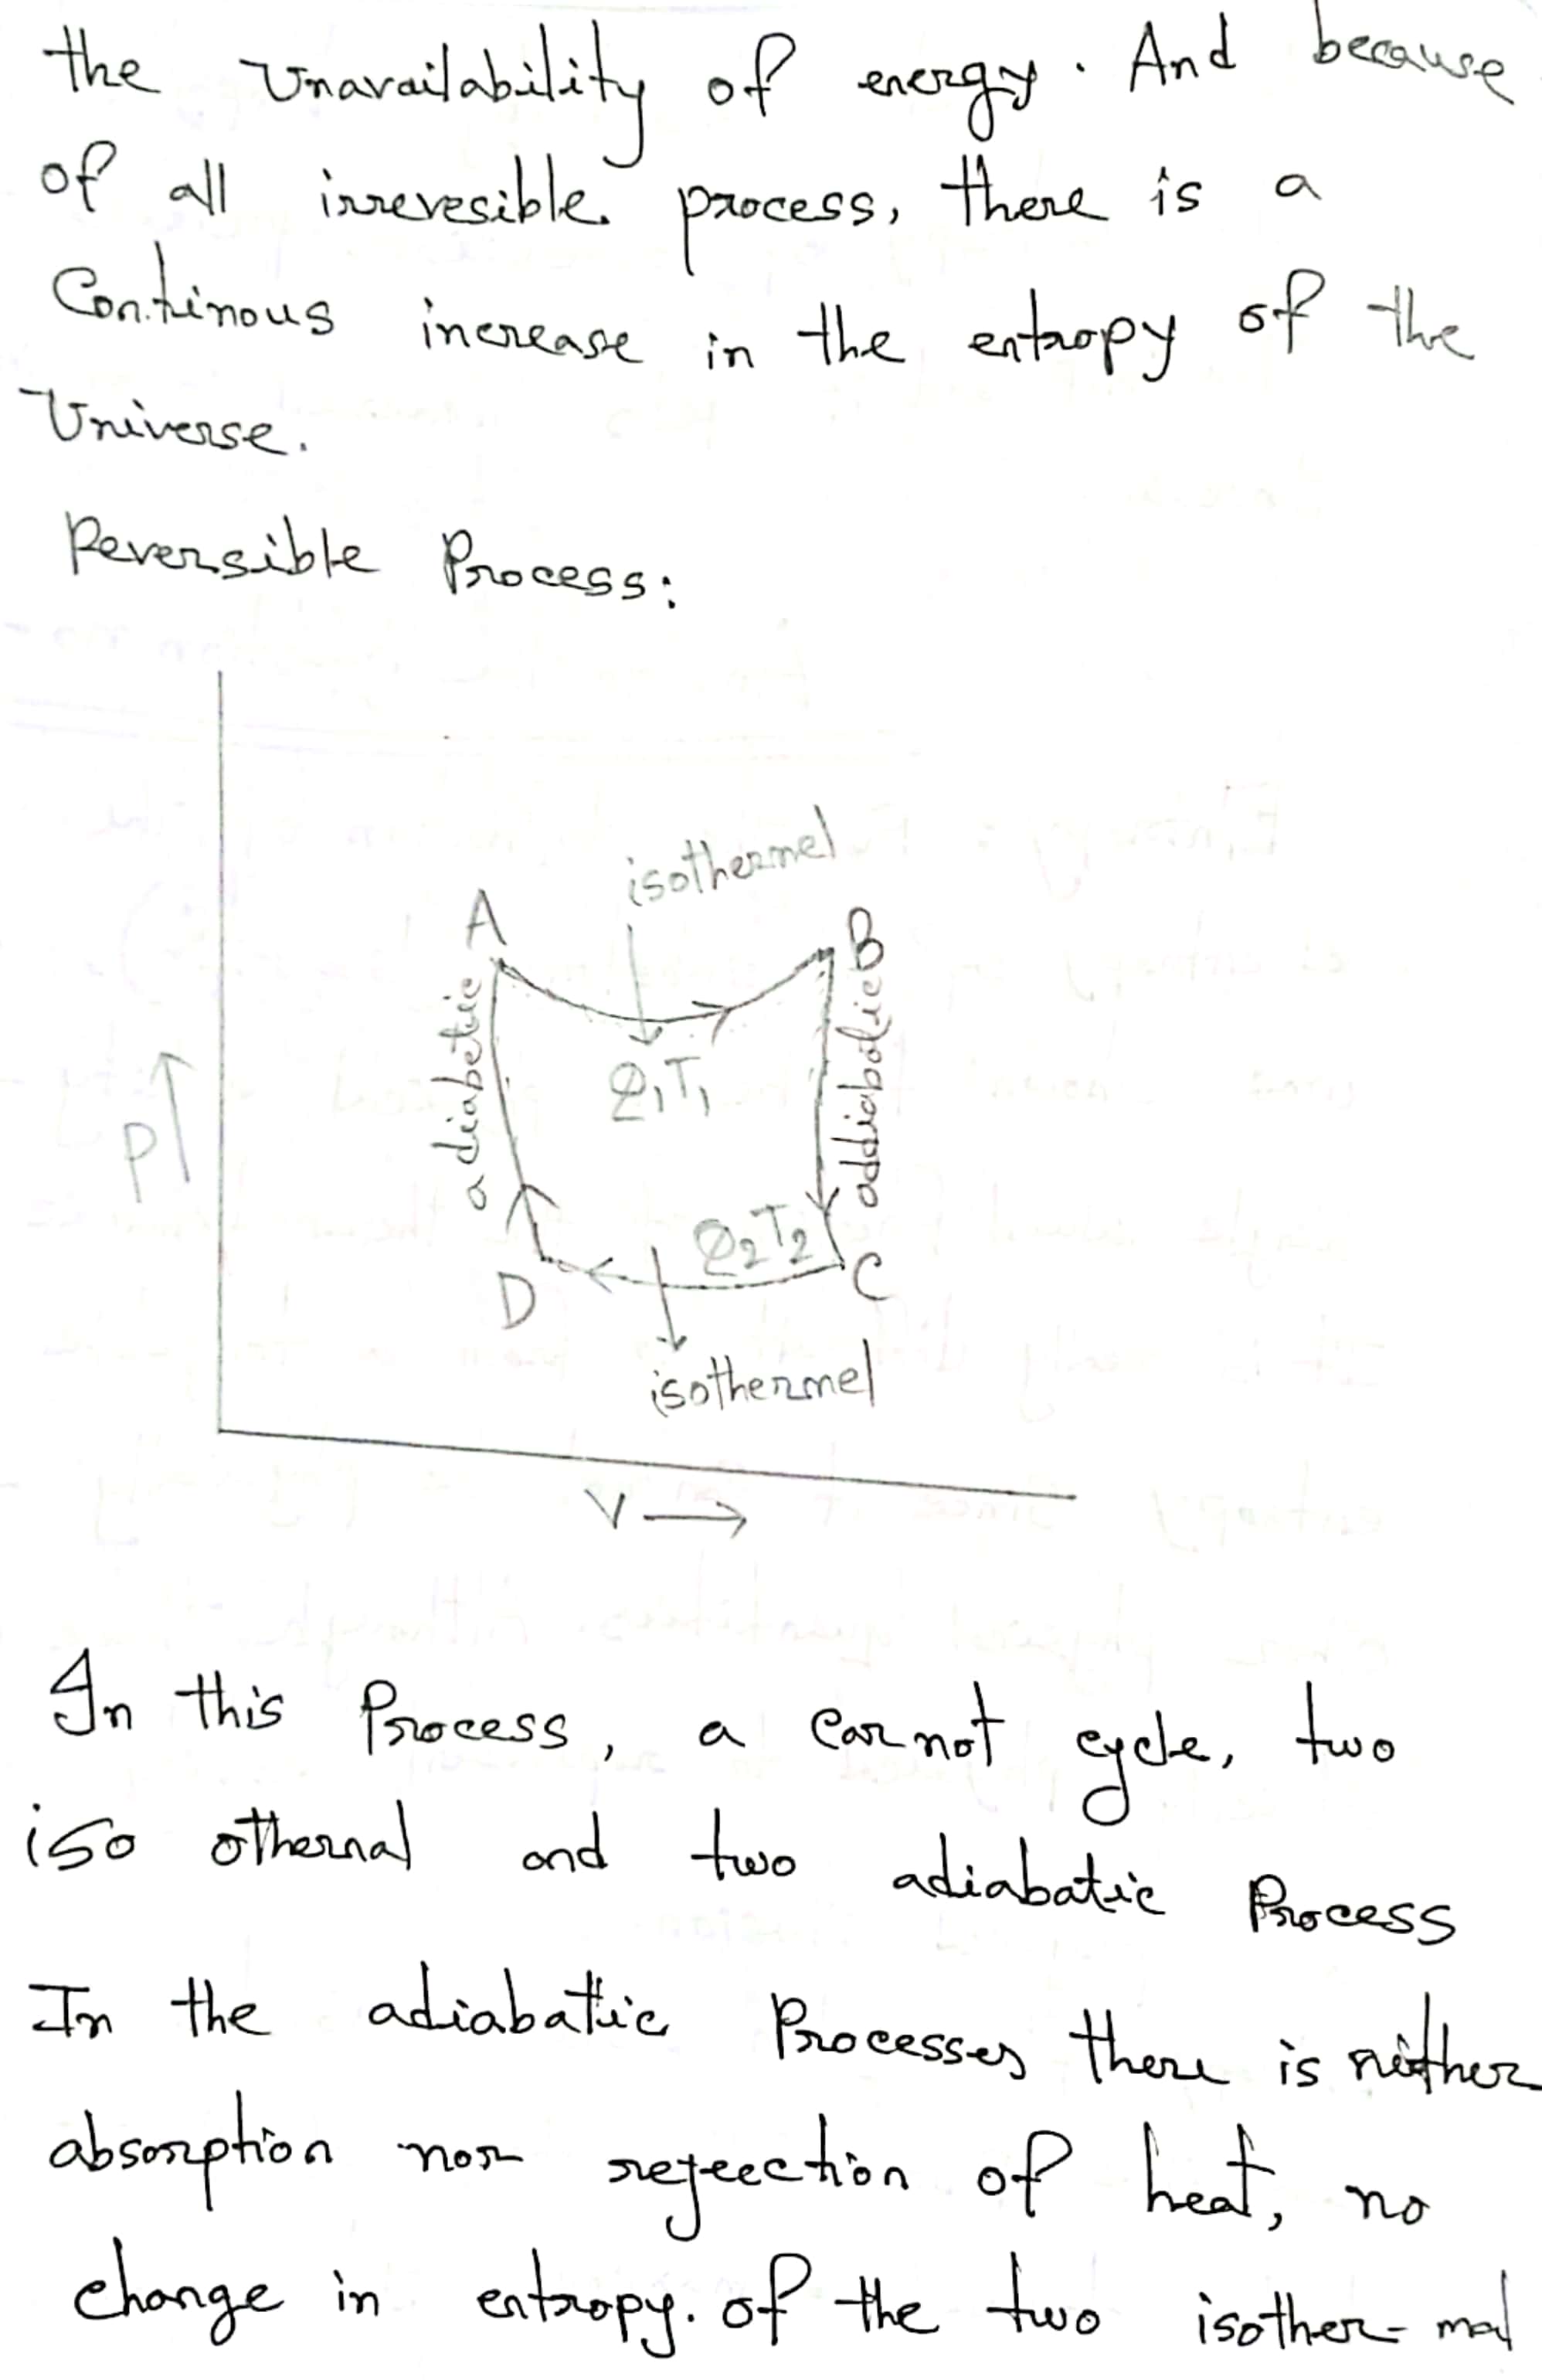 the Unavailability of energy. And because
of all irrevesible process, there is a
Continous increase in the entropy of the
Universe.
Reversible Process:
isothermel
A
B
adiabetic
addiabolic
Q₁T₁
P
Q₂T₂
D
C
isothermel
V
In this Process, a carnot cycle, two
iso othernal and two adiabatic Process
In the adiabattic Processes there is neither
absorption nor rejeection of heat, no
change in entropy. of the two isother- mal